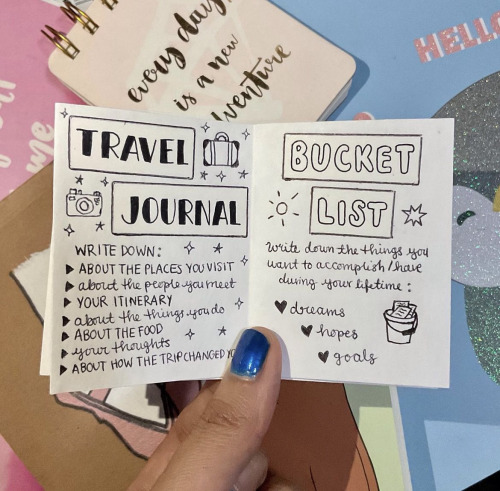 every day
is a new
venture
HELLO
me
TRAVEL
JOURNAL
WRITE DOWN:
ABOUT THE PLACES YOU VISIT
about the people you meet
YOUR ITINERARY
about the things you do
ABOUT THE FOOD
your thoughts
ABOUT HOW THE TRIP CHANGED
BUCKET
LIST
write down the things you
want to accomplish/have
during your lifetime:
dreams
hopes
goals